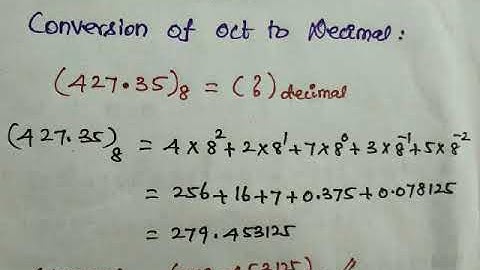 Conversion of oct to Decimal:
(427.35)₈ = (?)decimal
(427.35)₈ = 4×8²+2×8¹+7×8⁰+3×8⁻¹+5×8⁻²
= 256+16+7+0.375+0.078125
= 279.453125